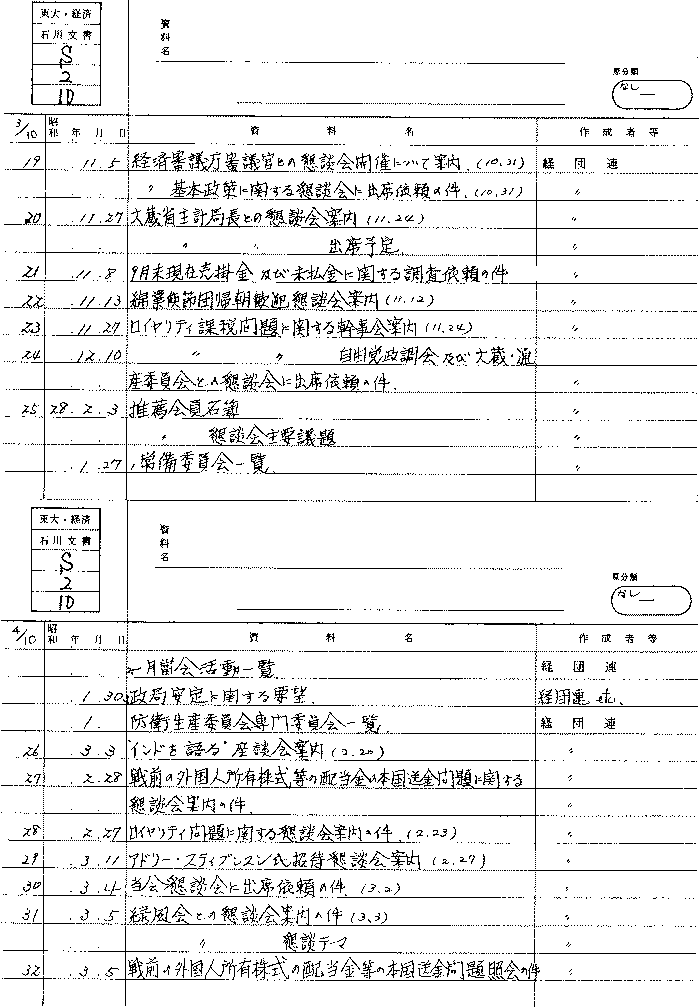 東大・経済
石川文書
S
2
10
資料名
原分類
なし
3/10 昭和 年 月 日 資料名 作成者等
19 11.5 経済審議庁審議官との懇談会開催について案内.(10.31) 経団連
〃 基本政策に関する懇談会に出席依頼の件.(10.31) 〃
20 11.27 大蔵省主計局長との懇談会案内(11.24) 〃
〃 〃 出席予定. 〃
21 11.8 9月末現在売掛金及び未払金に関する調査依頼の件 〃
22 11.13 綿業使節団帰朝歓迎懇談会案内(11.12) 〃
23 11.27 ロイヤリティ課税問題に関する幹事会案内(11.24) 〃
24 12.10 〃 〃 自由党政調会及び大蔵・通
産委員会との懇談会に出席依頼の件. 〃
25 28.2.3 推薦会員名簿 〃
〃 懇談会主要議題
1.27 常備委員会一覧. 〃
東大・経済
石川文書
S
2
10
資料名
原分類
なし
4/10 昭和 年 月 日 資料名 作成者等
月間会活動一覧 経団連
1.30 政局安定に関する要望. 経団連 etc.
1. 防衛生産委員会専門委員会一覧. 経団連
26 3.3 "インドを語る"座談会案内(2.20) 〃
27 2.28 戦前の外国人所有株式等の配当金の本国送金問題に関する 〃
懇談会案内の件. 〃
28 2.27 ロイヤリティ問題に関する懇談会案内の件.(2.23) 〃
29 3.11 アドリー・スティブンスン氏招待懇談会案内(2.27) 〃
30 3.4 当会懇談会に出席依頼の件.(3.2) 〃
31 3.5 緑風会との懇談会案内の件(3.3) 〃
〃 懇談テーマ 〃
32 3.5 戦前の外国人所有株式の配当金等の本国送金問題照会の件 〃